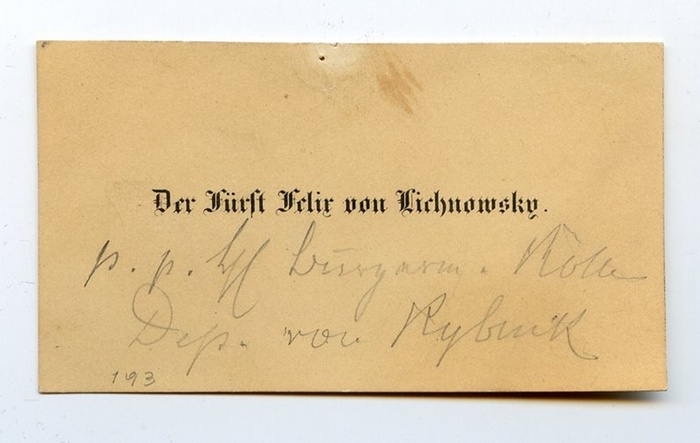 Der Fürst Felix von Lichnowsky.
p. p. Burgerm.
Dep. von Rybnik
193